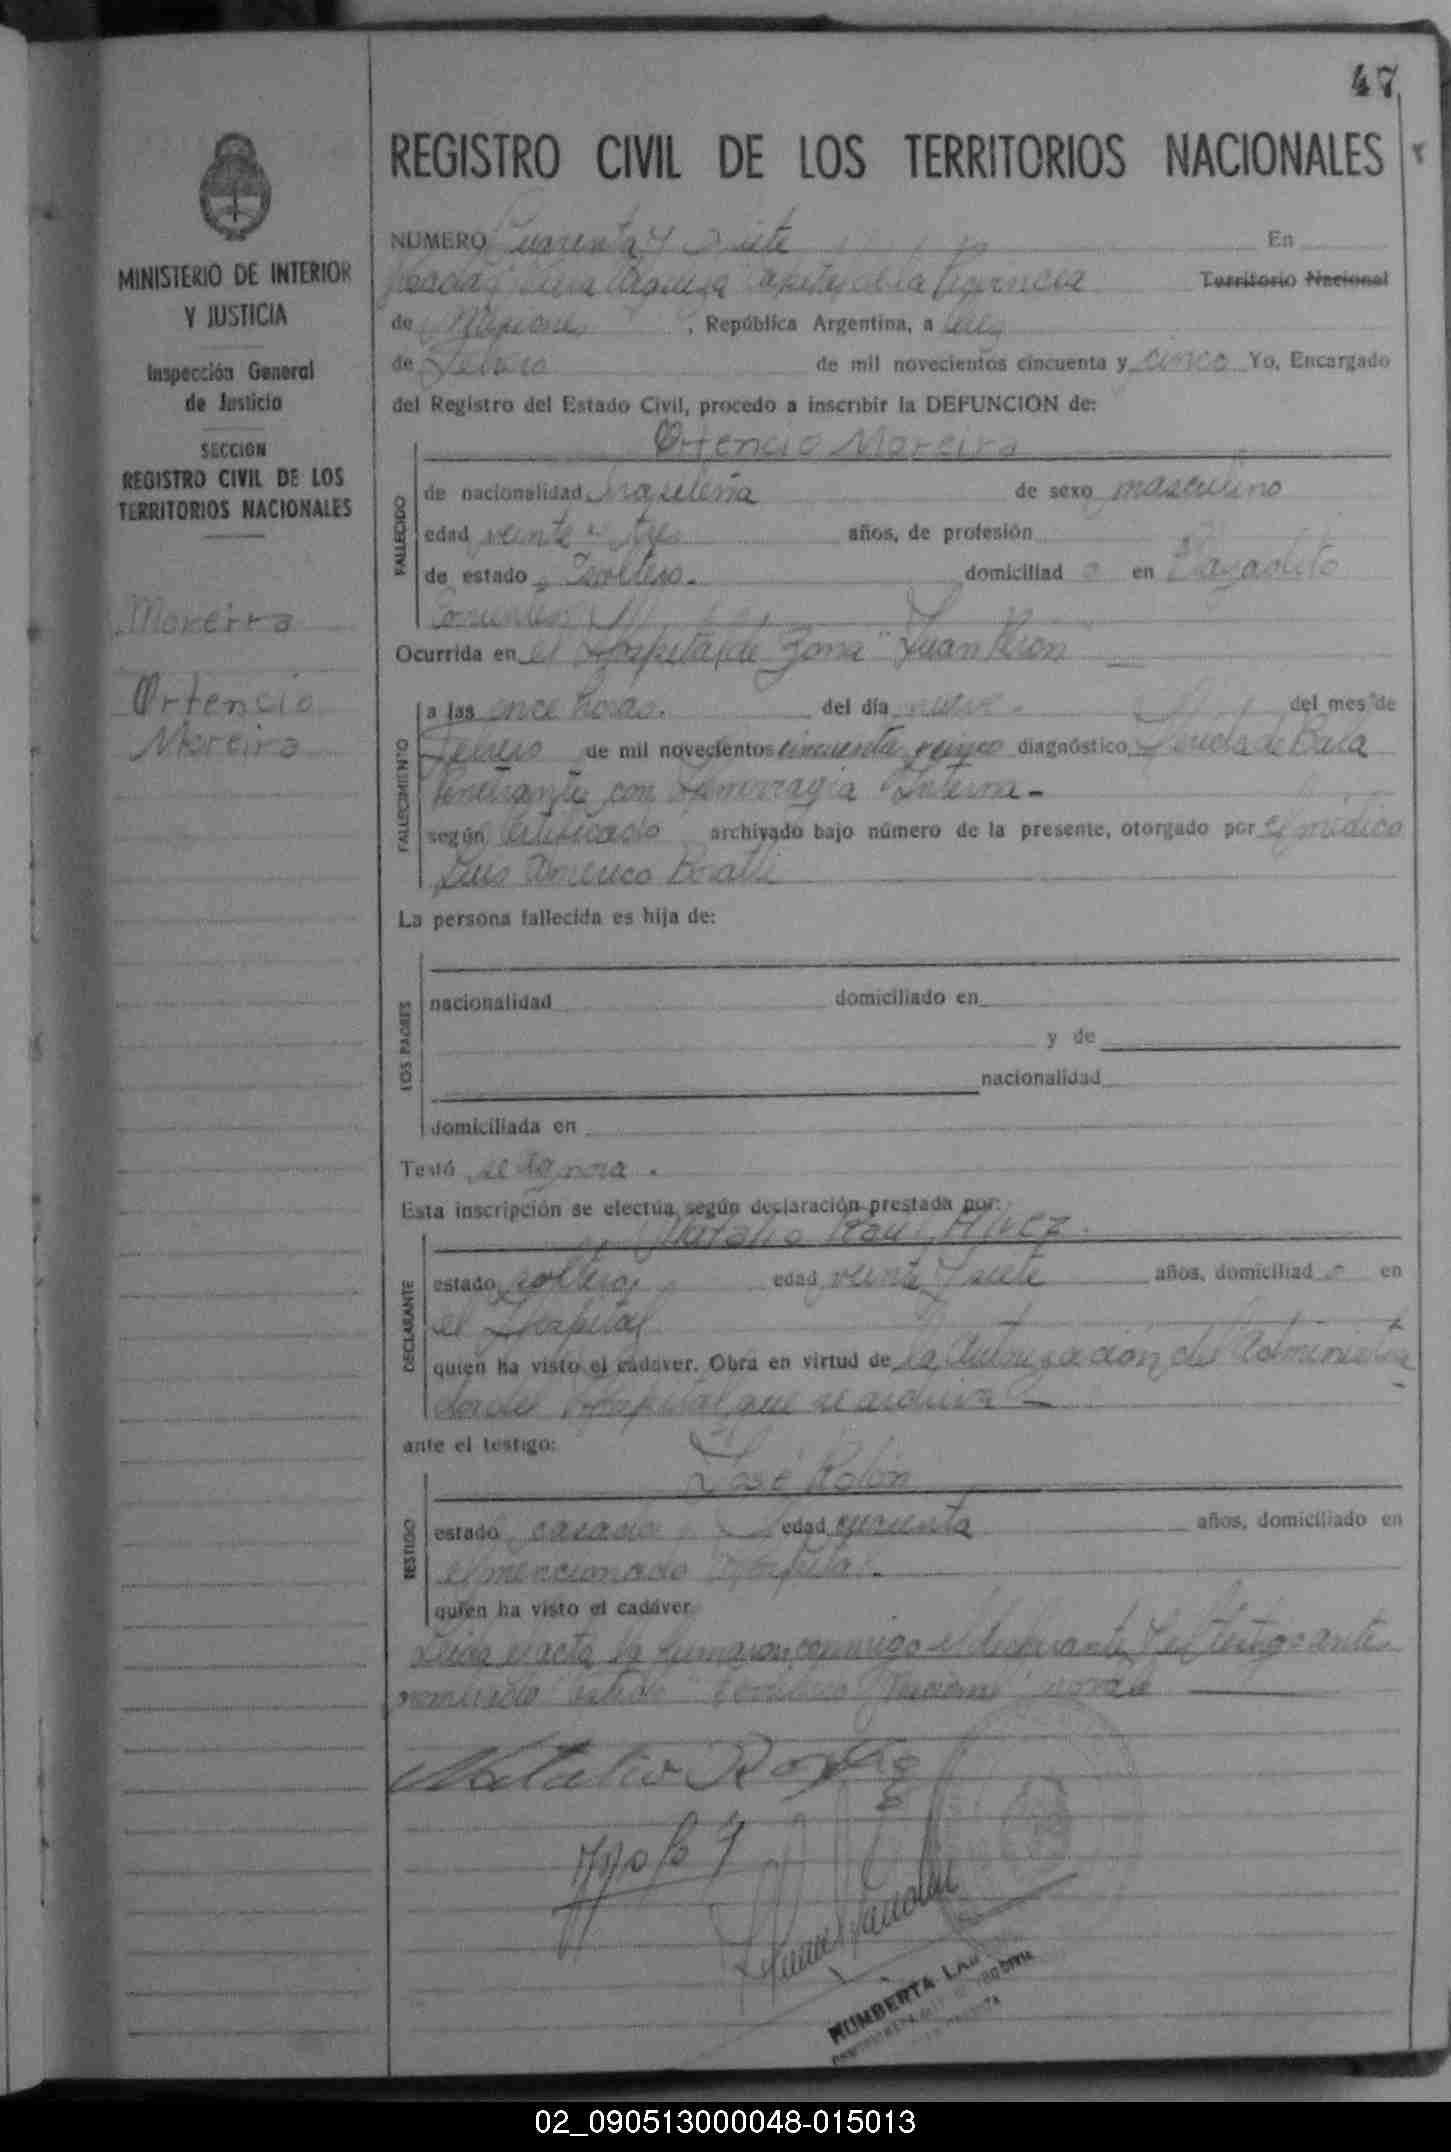 47
REGISTRO CIVIL DE LOS TERRITORIOS NACIONALES
MINISTERIO DE INTERIOR
Y JUSTICIA
Inspección General
de Justicia
SECCION
REGISTRO CIVIL DE LOS
TERRITORIOS NACIONALES
Moreira
Ortencio
Moreira
NUMERO Cuarenta y Siete En
Territorio Nacional
de Misiones, República Argentina, a
de Febrero de mil novecientos cincuenta y cinco Yo, Encargado
del Registro del Estado Civil, procedo a inscribir la DEFUNCION de:
Ortencio Moreira
FALLECIDO
de nacionalidad de sexo masculino
edad veinte y tres años, de profesión
de estado Soltero. domiciliad o en
Corrientes
Ocurrida en el Hospital de Zona "Juan Perón"
FALLECIMIENTO
a las once horas. del día nueve. del mes de
Febrero de mil novecientos cincuenta y cinco diagnóstico Herida de Bala
Penetrante con Hemorragia Interna -
según Certificado archivado bajo número de la presente, otorgado por el médico
Luis Américo
La persona fallecida es hija de:
LOS PADRES
nacionalidad domiciliado en
y de
nacionalidad
domiciliada en
Testó se ignora.
Esta inscripción se efectúa según declaración prestada por:
Natalio Raul
DECLARANTE
estado soltero, edad veinte y siete años, domiciliad o en
el Hospital
quien ha visto el cadáver. Obra en virtud de la autorización del Administra
dor del Hospital que se archiva -
ante el testigo:
José Rolón
TESTIGO
estado casado, edad años, domiciliado en
el mencionado Hospital.
quien ha visto el cadáver.
Leida el acta la firmaron conmigo el declarante y el testigo ante
nombrado
Natalio
HUMBERTA
02_090513000048-015013